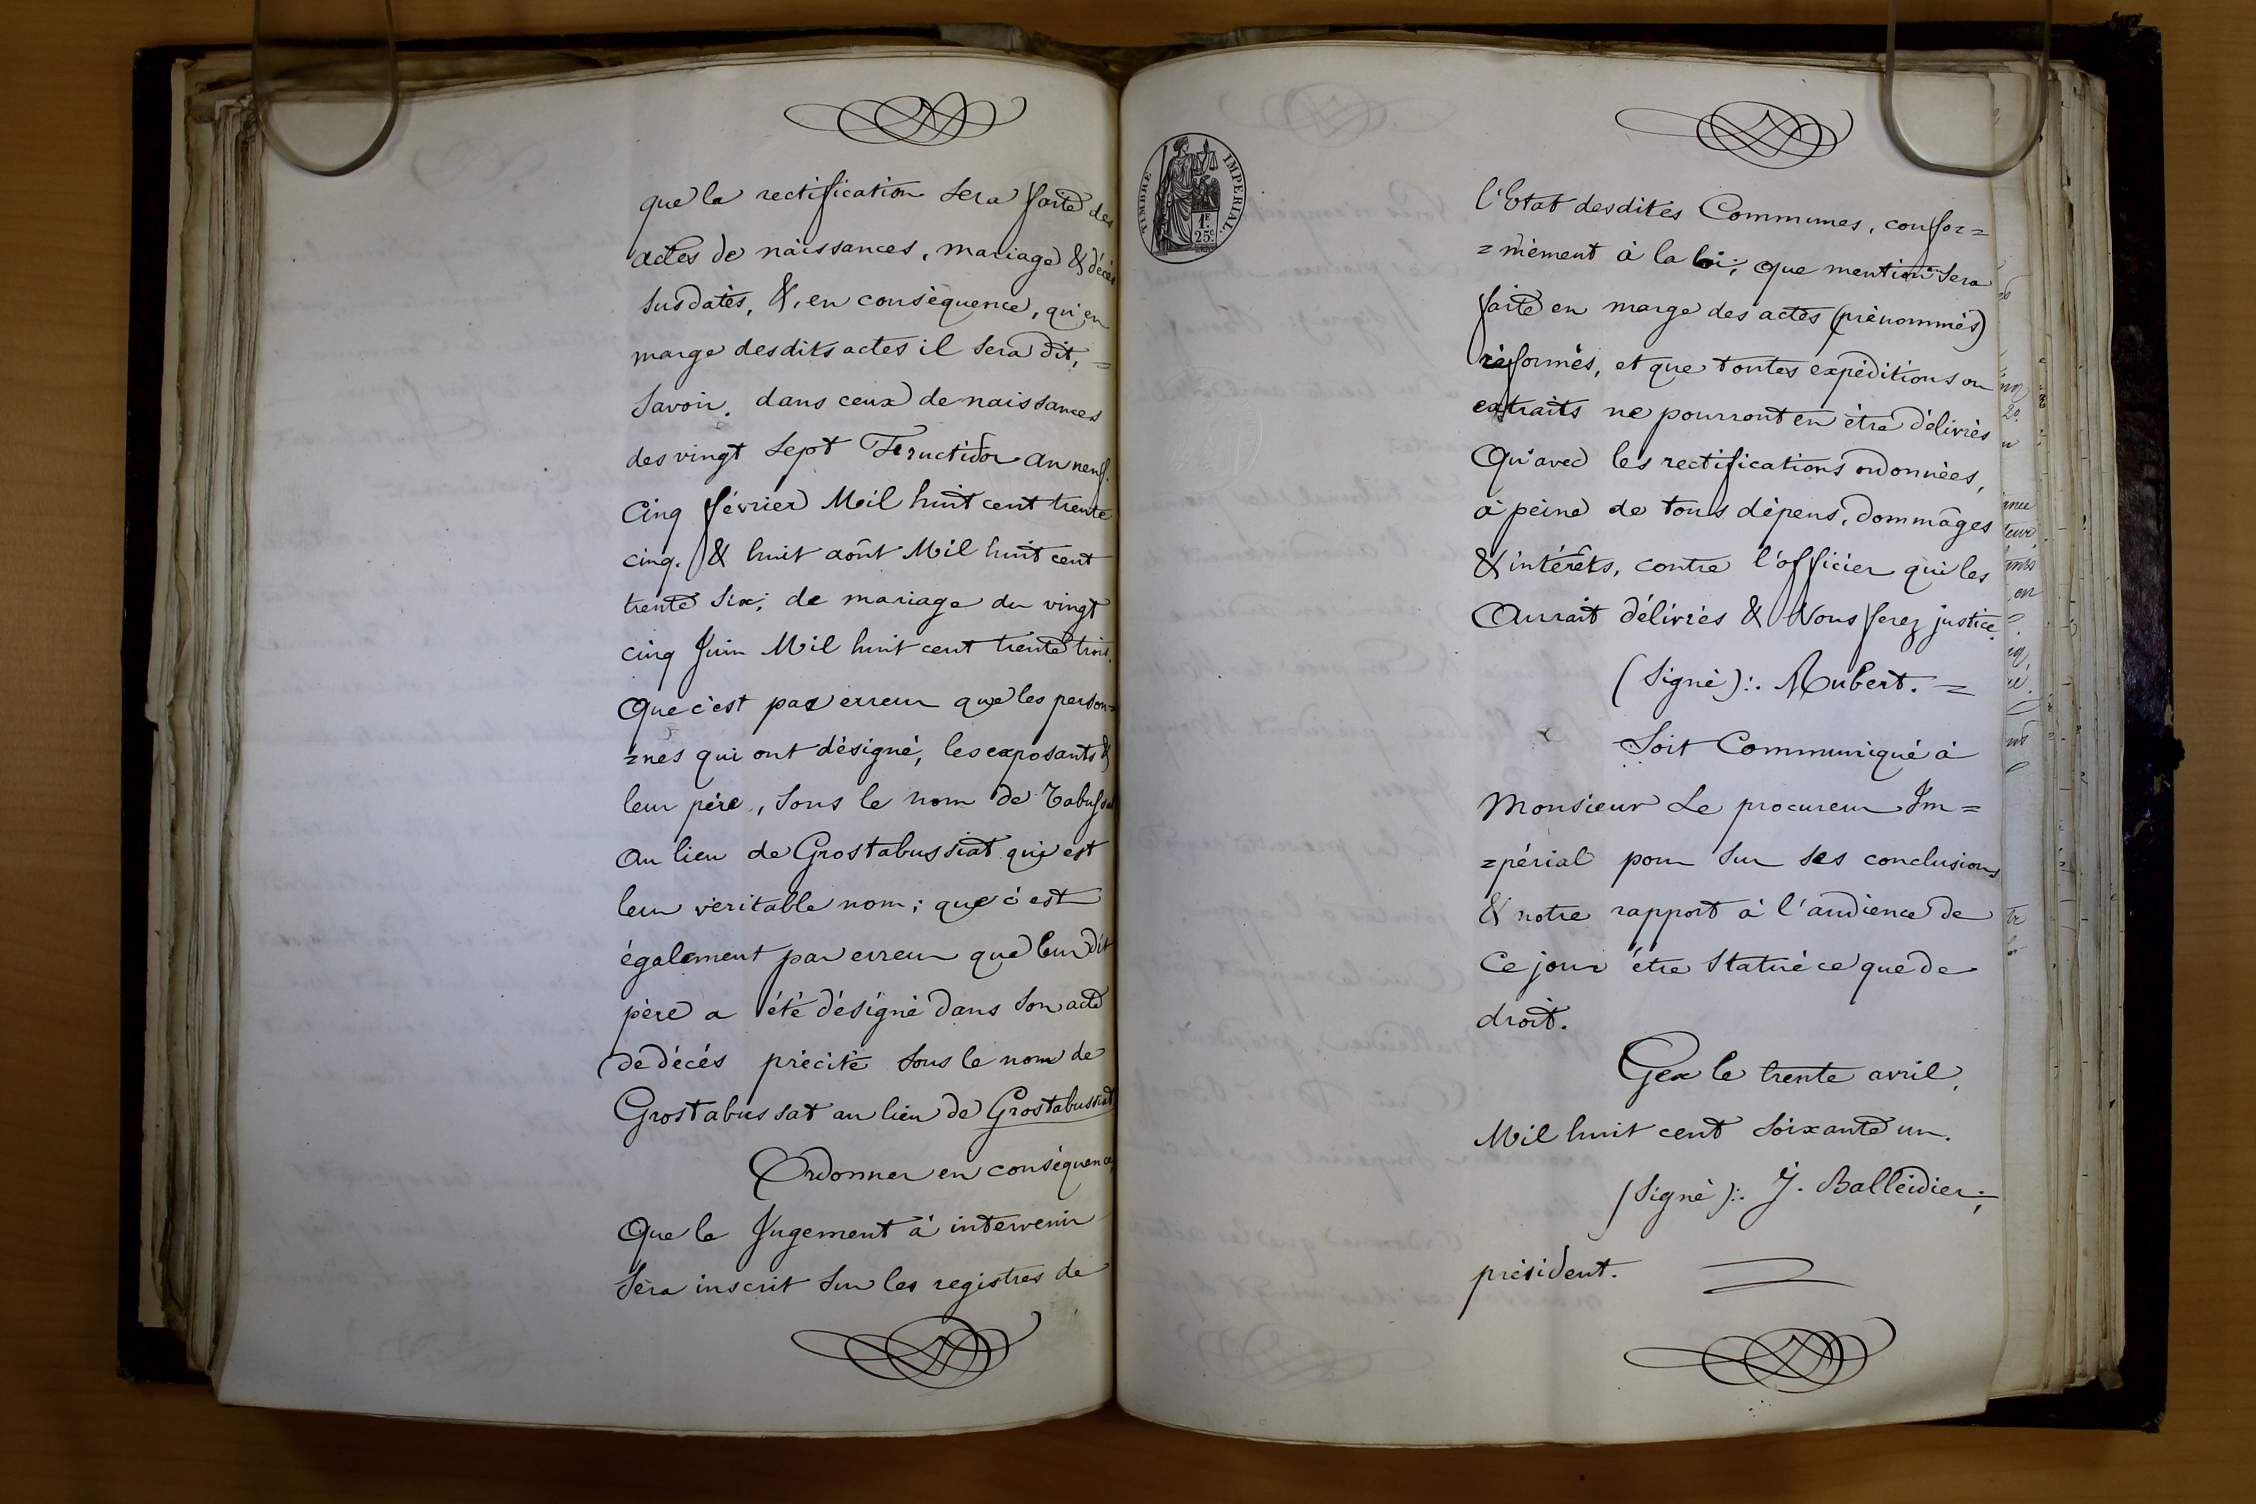 que la rectification sera faite des
actes de naissances, mariage & décès
susdatés, &, en conséquence, qu'en
marge desdits actes il sera dit, =
savoir. dans ceux de naissances
des vingt sept Fructidor an neuf.
Cinq février Mil huit cent trente
cinq. & huit août Mil huit cent
trente six; de mariage du vingt
cinq Juin Mil huit cent trente trois.
Que c'est par erreur que les person=
=nes qui ont désigné, les exposants &
leur père, sous le nom de
au lieu de Grostabussiat qui est
leur véritable nom; que c'est
également par erreur que leur dit
père a été désigné dans son acte
de décès précité sous le nom de
Grostabussat au lieu de Grostabussiat
Ordonner en conséquence,
Que le Jugement à intervenir
sera inscrit sur les registres de
TIMBRE IMPERIAL.
1F.
25c.
l'Etat desdites Communes, confor=
=mément à la loi; que mention sera
faite en marge des actes (prénommés)
réformés, et que toutes expéditions ou
extraits ne pourront en être délivrés
Qu'avec les rectifications ordonnées,
à peine de tous dépens, dommâges
& intérêts, contre l'officier qui les
Aurait délivrés & Vous ferez justice.
(Signé):. Mubert. =
Soit Communiqué à
Monsieur Le procureur Im=
=périal pour sur ses conclusions
& notre rapport à l'audience de
Ce jour être Statué ce que de
droit.
Gex le trente avril,
Mil huit cent soixante un.
(Signé):. J. Balleidier;
président.